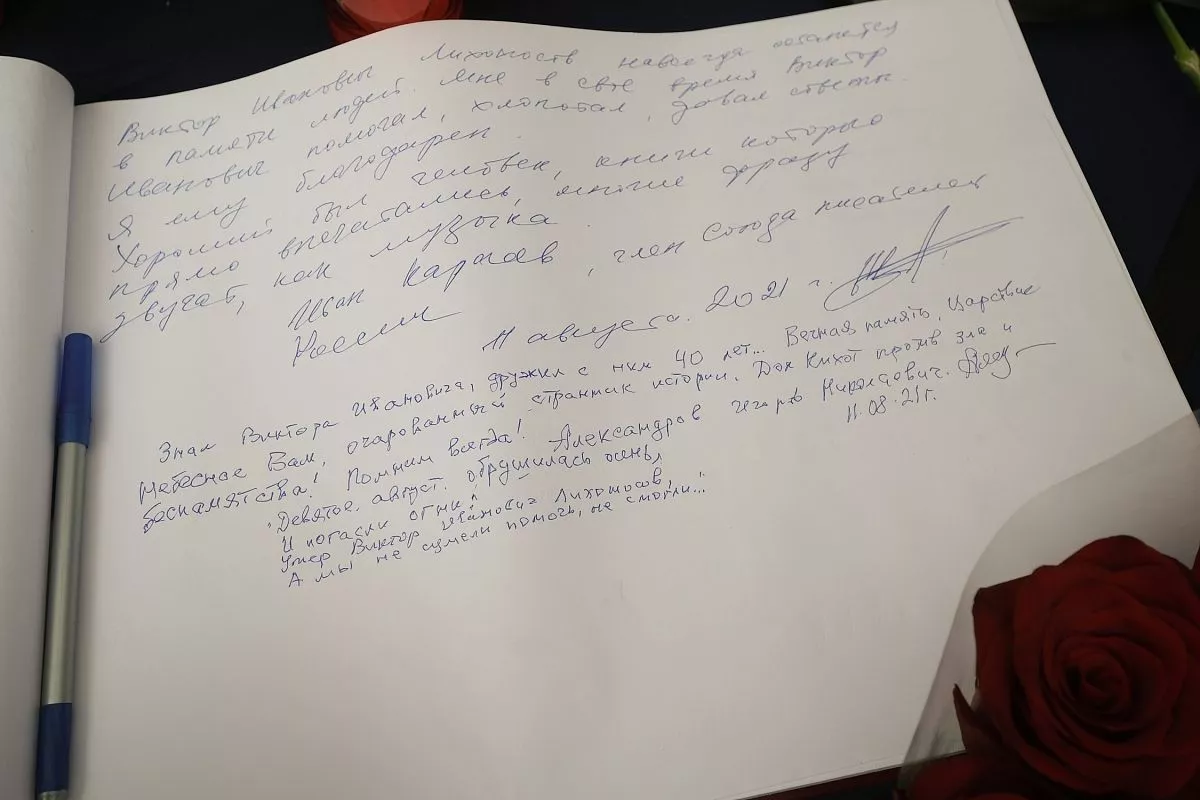 Виктор Иванович Лихоносов навсегда останется
в памяти людей. Мне в своё время Виктор
Иванович помогал, хлопотал, давал советы.
Я ему благодарен.
Хороший был человек, книги которого
прямо впечатались, многие фразы
звучат, как музыка.
Иван Карасёв, член Союза писателей
России
11 августа. 2021 г.
Знал Виктора Ивановича, дружил с ним 40 лет... Вечная память, Царствие
Небесное Вам, очарованный странник истории. Дон Кихот против зла и
беспамятства! Помним всегда! Александров Игорь Николаевич.
11.08.21г.
"Девятое. август. обрушилась осень,
И погасли огни.
Умер Виктор Иванович Лихоносов,
А мы не сумели помочь, не смогли..."